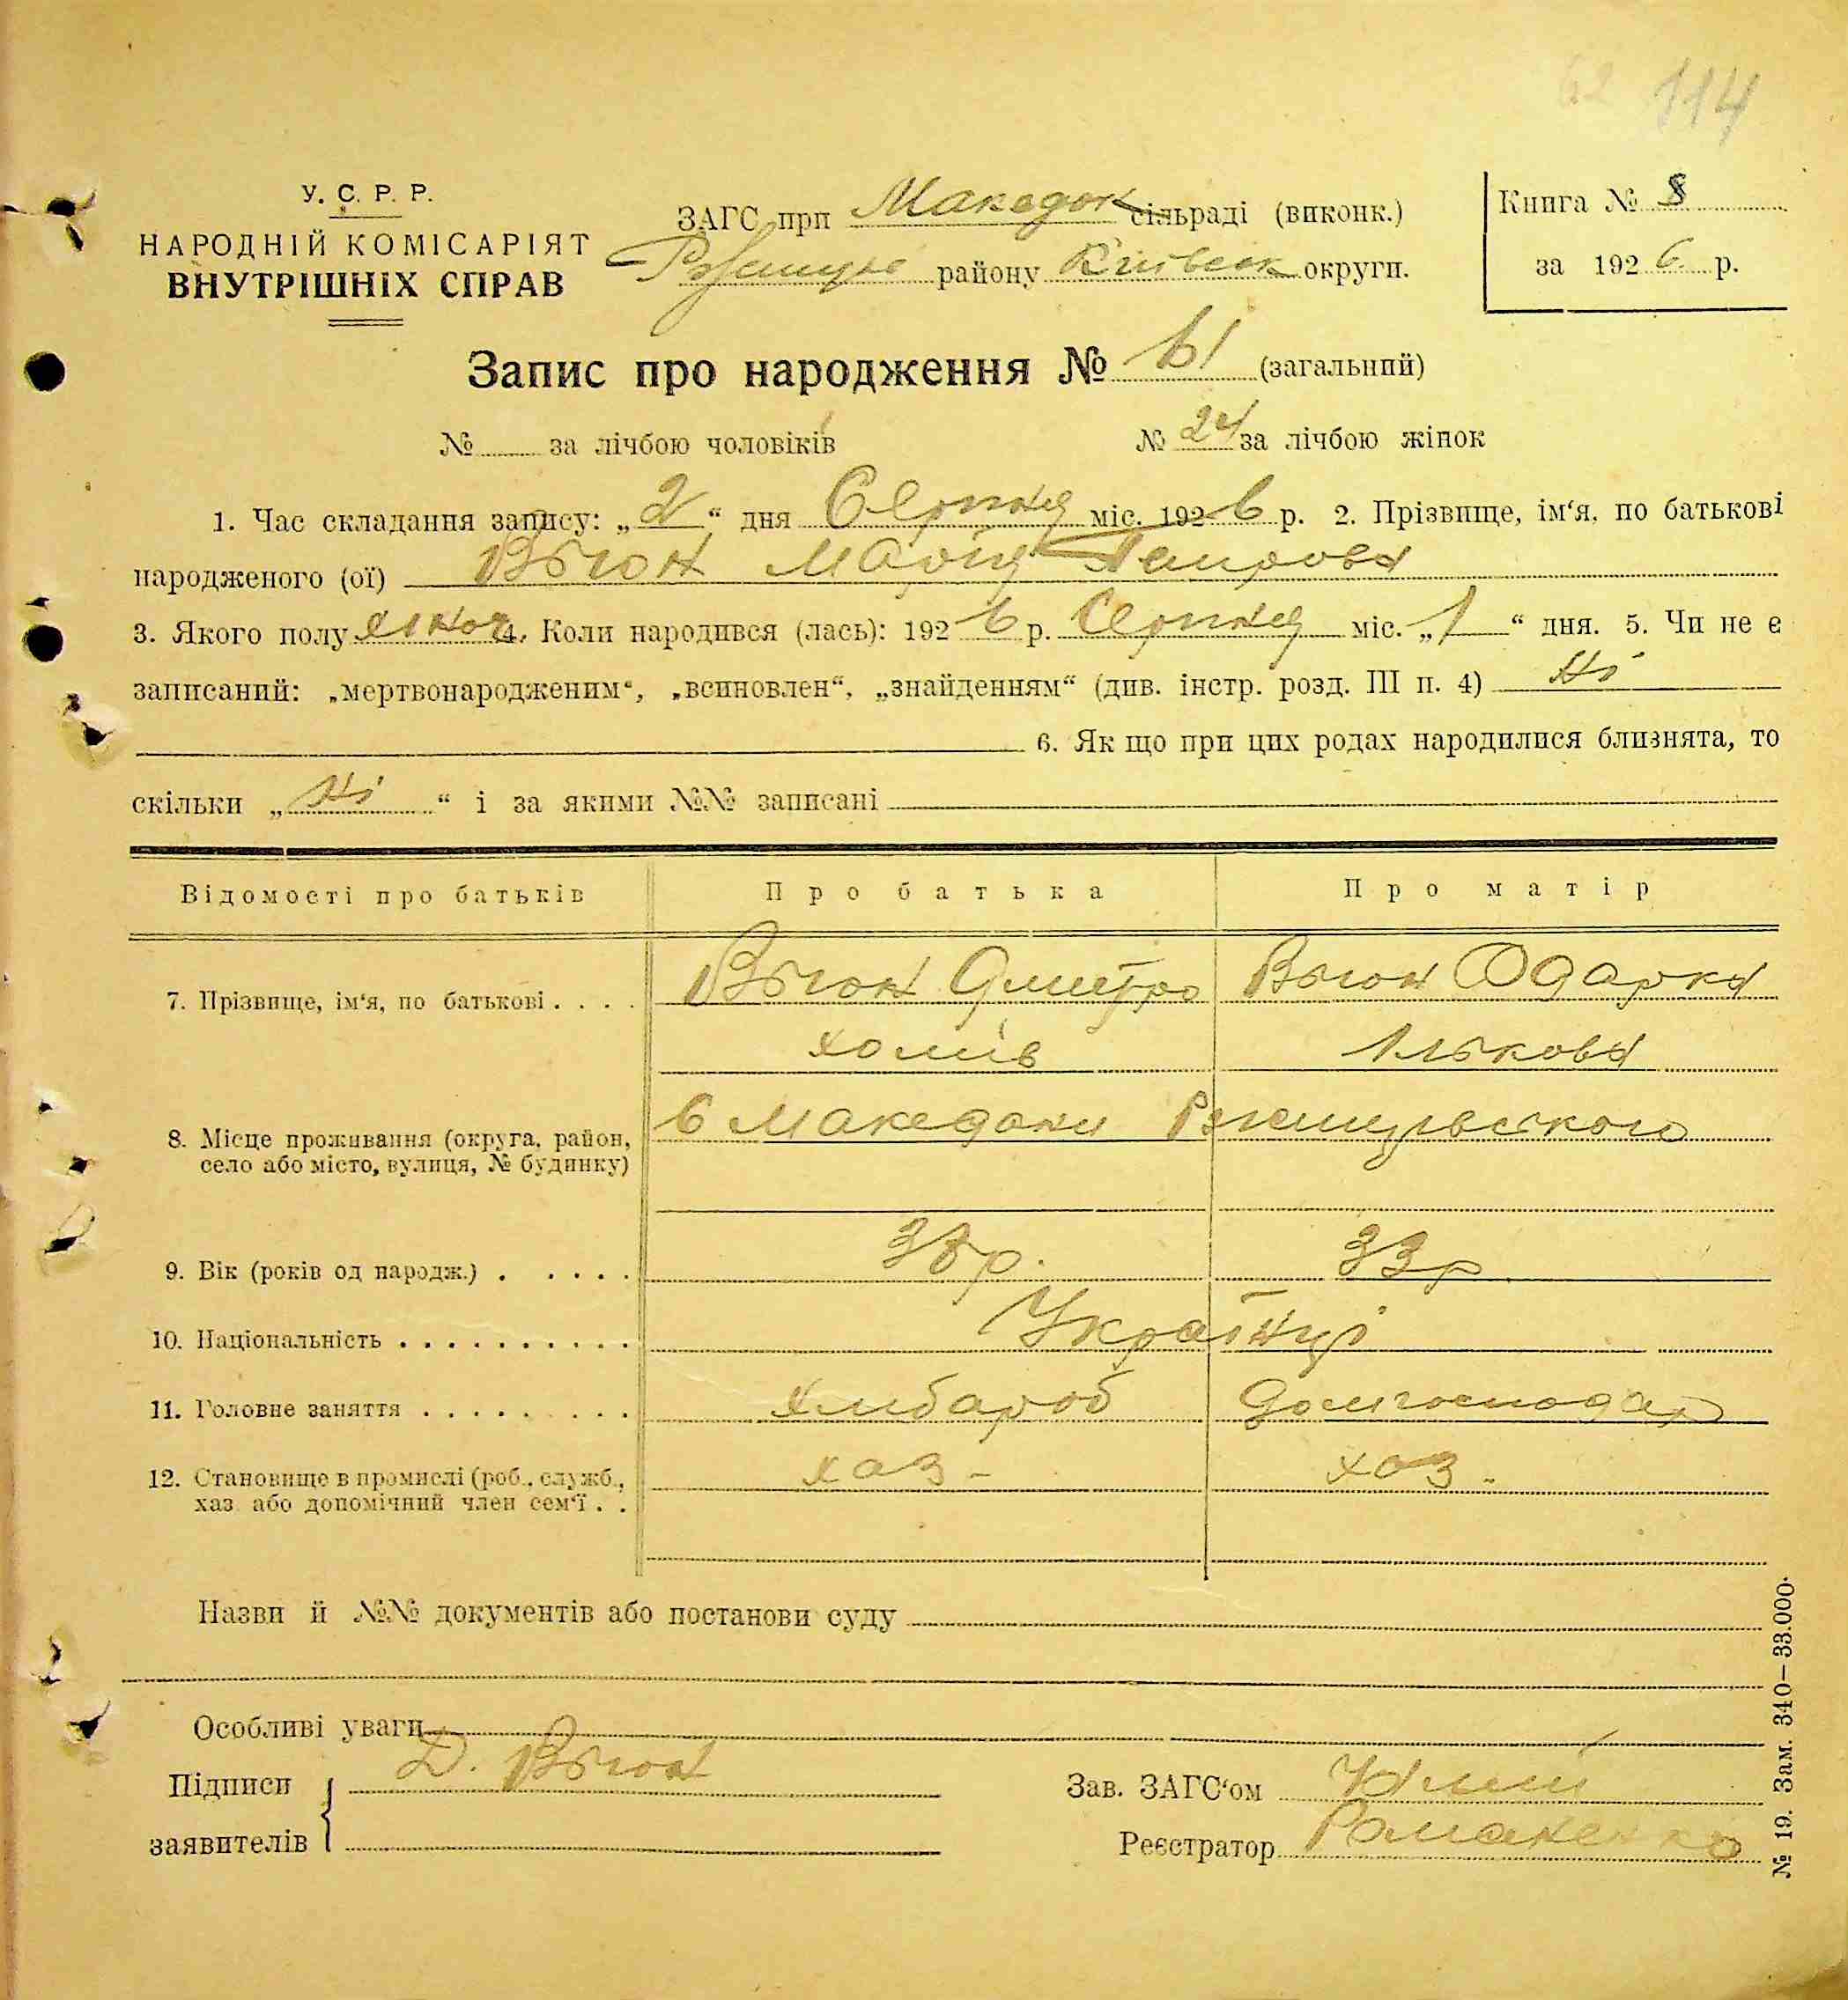 62 114
У. С. Р. Р.
НАРОДНІЙ КОМІСАРІЯТ
ВНУТРІШНІХ СПРАВ
ЗАГС при Македон сільраді (виконк.)
району Київськ округи.
Книга № 8
за 1926 р.
Запис про народження № 61 (загальний)
№ за лічбою чоловіків № 24 за лічбою жінок
1. Час складання запису: „2“ дня Серпня міс. 1926 р. 2. Прізвище, ім‘я, по батькові
народженого (ої) Вьюн Марія
3. Якого полу жіноч 4. Коли народився (лась): 1926 р. Серпня міс. „1“ дня. 5. Чи не є
записаний: „мертвонародженим“, „всиновлен“, „знайденням“ (див. інстр. розд. III п. 4) Ні
6. Як що при цих родах народилися близнята, то
скільки „Ні“ і за якими №№ записані
Відомості про батьків Про батька Про матір
7. Прізвище, ім‘я, по батькові . . . . Вьюн Дмитро Вьюн Одарка
хомів Ількова
8. Місце проживання (округа, район, с Македони Ржищівського
село або місто, вулиця, № будинку)
9. Вік (років од народж.) . . . . . 38р. 33р
10. Національність . . . . . . . . . . Українці
11. Головне заняття . . . . . . . . . хлибароб домгосподар
12. Становище в промислі (роб., служб., хаз - хоз -
хаз. або допомічний член сем‘ї . .
Назви й №№ документів або постанови суду
Особливі уваги
Підписи Д. Вьюн
заявителів
Зав. ЗАГС‘ом
Реєстратор Романенко
№ 19. Зам. 340—33.000.